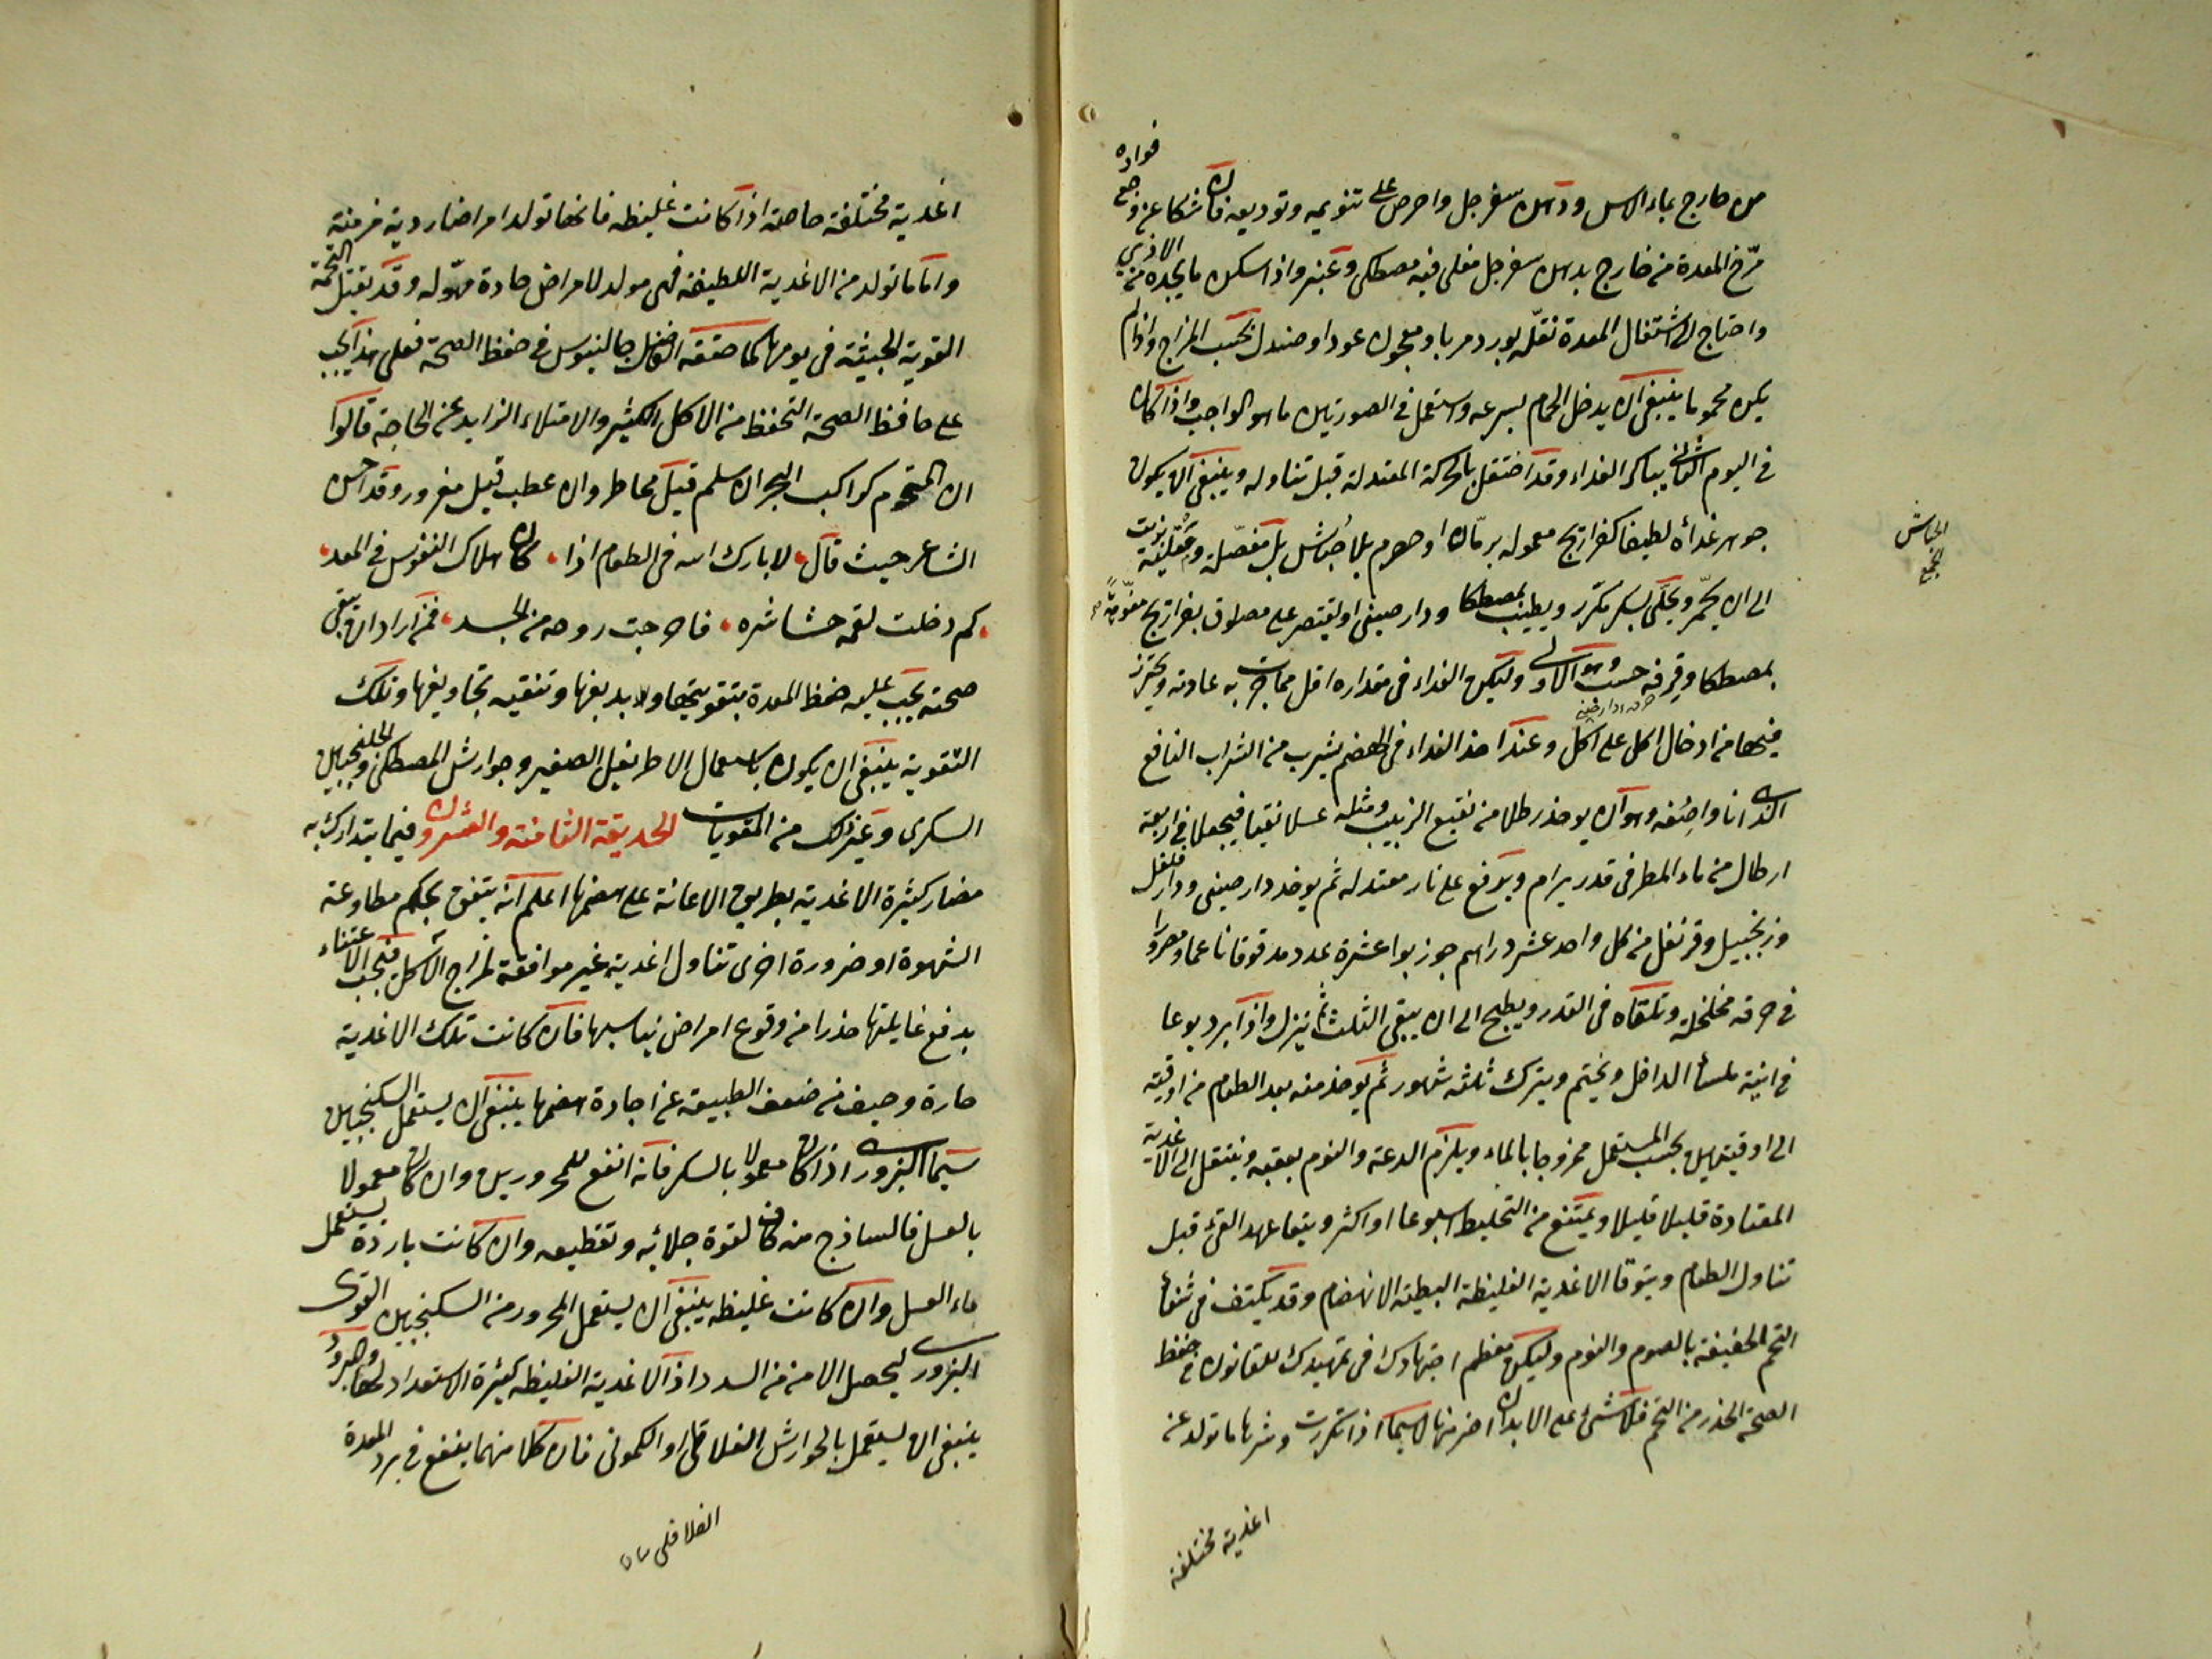 من خارج بماء الاس ودهن سفرجل واحرص على تنويمه وتوديعه فان شكا عن وجع فواده
مرّخ المعدة من خارج بدهن سفرجل مغلى فيه مصطكى وعنبر واذا سكن ما يجده من الاذى
واحتاج الى اشتغال المعدة نقله بورد مربا ومعجون عود او صندل بحسب المزاج واذا لم
يكن محموما ينبغى ان يدخل الحمام بسرعه واستعمل فى الصورتين ما هو الواجب واذا كان
فى اليوم الثانى يباكر الغداء وقد احتفل بالحركة المعتدلة قبل تناوله وينبغى ان يكون
جوهر غدأه لطيفا كفراريج معموله برمّان او حصرم بلا حشاش بل مفصّلة ومقليّة بزيت
الى ان يحمّر ويحلّى بسكر مكرر ويطيب بمصطكا ودارصينى او يقتصر على مصلوق بفراريج
بمصطكا وقرفه حسب وهو الاولى وليكن الغداء فى مقداره اقل مما جرت به عادته ويحترز
فيها من ادخال اكل على اكل وعند اخذ الغداء فى الهضم يشرب من الشراب النافع
الذى انا واصفه وهو ان يوخذ رطلا من نقيع الزبيب ومثله عسلا نقيا فيجعلا فى اربعة
ارطال من ماء المطر فى قدر برام ويرفع على نار معتدله ثم يوخذ دارصينى ودارفلفل
وزنجبيل وقرنفل من كل واحد عشر دراهم جوز بوا عشرة عدد مدقوقا ناعما ومصرورا
فى خرقه مخلخلة وتلقاه فى القدر ويطبخ الى ان يبقى الثلث ثم ينزل واذا برد يوعا
فى انية ملسأ الداخل ويختم ويترك ثلثه شهور ثم يوخذ منه بعد الطعام من اوقية
الى اوقيتين بحسب المستعمل ممزوجا بالماء ويلزم الدعة والنوم بعقبه وينتقل الى الاغدية
المعتادة قليلا قليلا ويمتنع من التخليط اسبوعا او اكثر ويتعاهد القئ قبل
تناول الطعام ويتوقا الاغدية الغليظة البطيئة الانهضام وقد يكتف فى شفأ
التخم الخفيفة بالصوم والنوم وليكن معظم اجتهادك فى تمهيدك للقانون فى حفظ
الصحة الحذر من التخم فلا شئ على الابدان اضر منها لاسيما اذا تكررت وشرها ما تولد عن
اغدية مختلفة
اغدية مختلفة خاصة اذا كانت غليظه فانها تولد امراضا ردية مزمنة
واما ما تولد من الاغدية اللطيفة فهى مولد لامراض حادة مهوله وقد تقتل التخمة
القوية الخبيثة فى يومها كما حققه الفاضل جالينوس فى حفظ الصحة فعلى هذا يجب
على حافظ الصحة التحفظ من الاكل الكثير والامتلاء الزايد عن الحاجة قالوا
ان المتخوم كراكب البحر ان سلم قيل مخاطر وان عطب قيل مغرور وقد احسن
الشاعر حيث قال لا بارك الله فى الطعام اذا كان هلاك النفوس فى المعد
كم دخلت لقمه حشا شره فاخرجت روحه من الجسد فمن اراد ان تبقى
صحته يجب عليه حفظ المعدة بتقويتها ولا بدبغها وتنقيه تجاويفها وتلك
التقوية ينبغى ان يكون باستعمال الاطريفل الصغير وجوارش المصطكى والجلنجبين
السكرى وغير ذلك من المقويات الحديقة الثامنة والعشرون فيما يتدارك به
مضار كثيرة الاغدية بطريق الاعانة على هضمها اعلم انه يتفق بحكم مطاوعة
الشهوة او ضرورة اخرى تناول اغدية غير موافقة لمزاج الآكل فيجب الاعتناء
بدفع غايلتها حذرا من وقوع امراض تناسبها فان كانت تلك الاغدية
حارة وخيف من ضعف الطبيعة عن اجادة هضمها ينبغى ان يستعمل السكنجبين
سيما البزورى اذا كان معمولا بالسكر فانه انفع للمحرورين وان كان معمولا
بالعسل فالساذج منه كاف لقوة جلائه وتقطيعه وان كانت باردة يستعمل
ماء العسل وان كانت غليظه ينبغى ان يستعمل المحرور من السكنجبين القوى
البزورى ليحصل الامن من السدد اذ الاغدية الغليظه كثيرة الاستعداد لها والمبرود
ينبغى ان يستعمل بالجوارش الفلافلى او الكمونى فان كلا منهما ينفع فى برد المعدة
الفلافلى